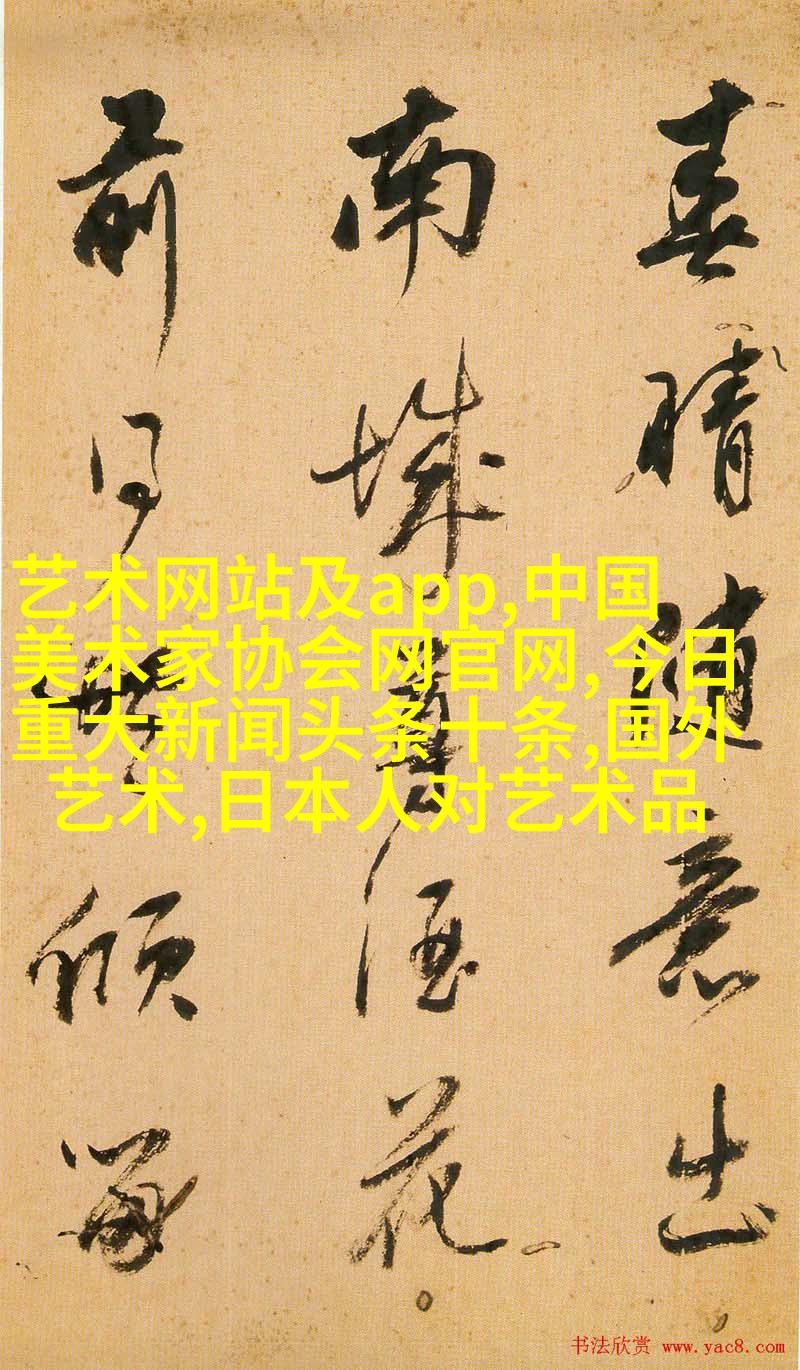 春晴随意出
南城酒花
前
艺术网站及app,中国
美术家协会网官网,今日
重大新闻头条十条,国外
艺术,日本人对艺术品
书法欣赏 www.yac8.com